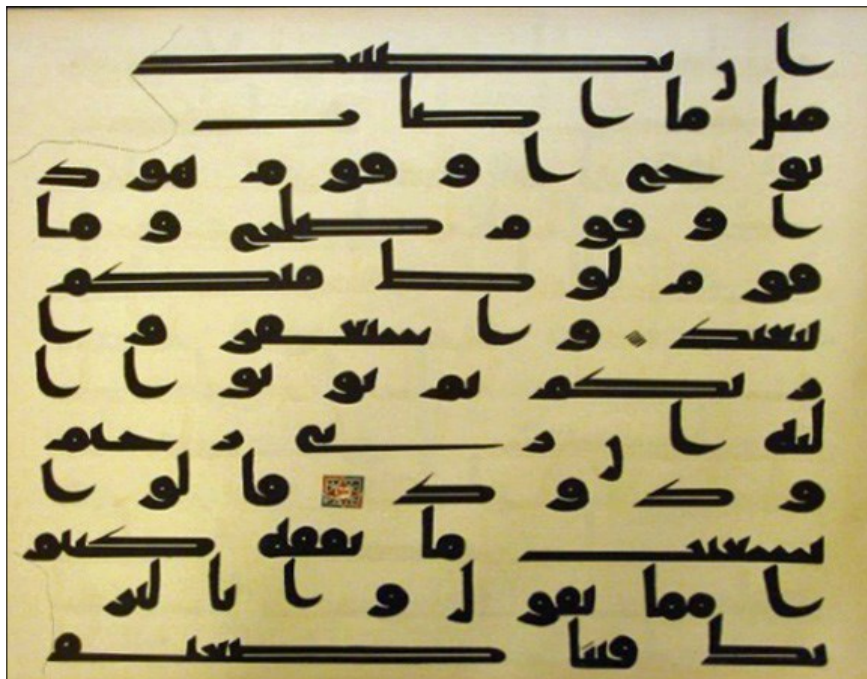 ا ن يصيبكم
مثل ما ا صا ب
نو ح ا و قو م هو د
ا و قو م صلح و ما
قو م لو ط منكم
ببعيد و ا ستغفر و ا
ر بكم ثم تو بو ا ا
ليه ا ن ر بي ر حيم
و د و د قا لو ا
يشعيب ما نفقه كثير
ا مما تقو ل و ا نا لنر
يك فينا ضعيف